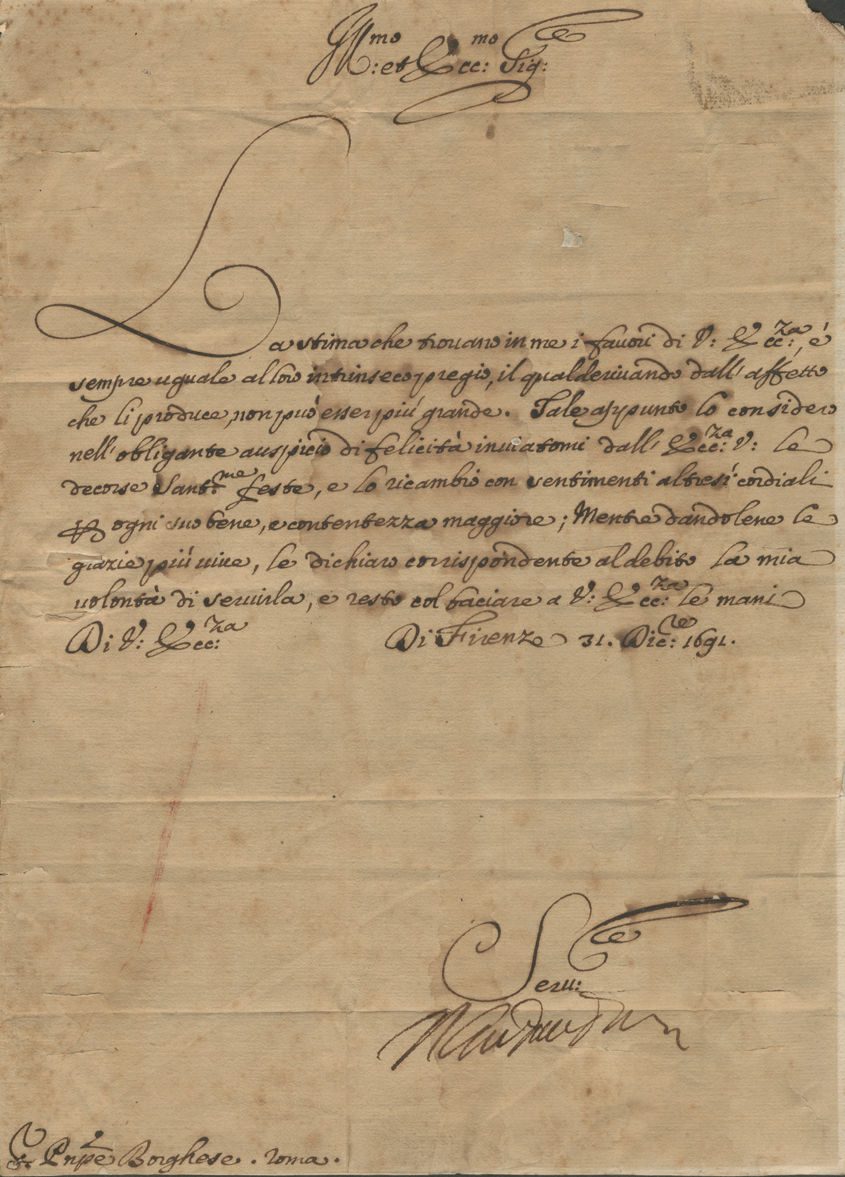 Ill.mo et Ecc.mo Sig.re
La stima che trouano in me i fauori di V: Ecc:za, é
sempre uguale al loro intrinseco pregio, il qual deriuando dall'affetto
che li produce, non può esser più grande. Tale appunto lo considero
nell'obligante auspicio di felicità inuiatomi dall'Ecc:za V: le
decorse Sant:me feste, e lo ricambio con sentimenti altresì cordiali
ogni suo bene, e contentezza maggiore; Mentre dandolene le
grazie più uiue, le dichiaro corrispondente al debito la mia
uolontà di seruirla, e resto col baciare a V: Ecc:za le mani
Di V: Ecc:za Di Firenze 31. Dic:re 1691.
Seru:re
Prnpe Borghese. roma.